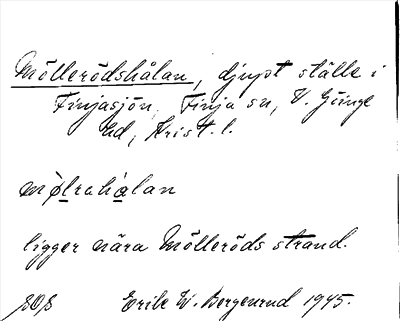 Möllerödshålan, djupt ställe i
Finjasjön, Finja sn, V. Göinge
hd, Krist. l.
mø̀lrahålan
ligger nära Mölleröds strand.
Erik W. Bergenrud 1945.